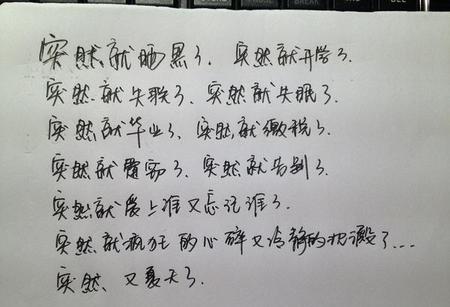 突然就晒黑了、突然就开学了、
突然就失联了、突然就失眠了、
突然就毕业了、突然就缴税了、
突然就离别了、突然就告别了、
突然就爱上谁又忘记谁了、
突然就疯狂的心碎又冷静的把毁了...
突然、又夏天了、